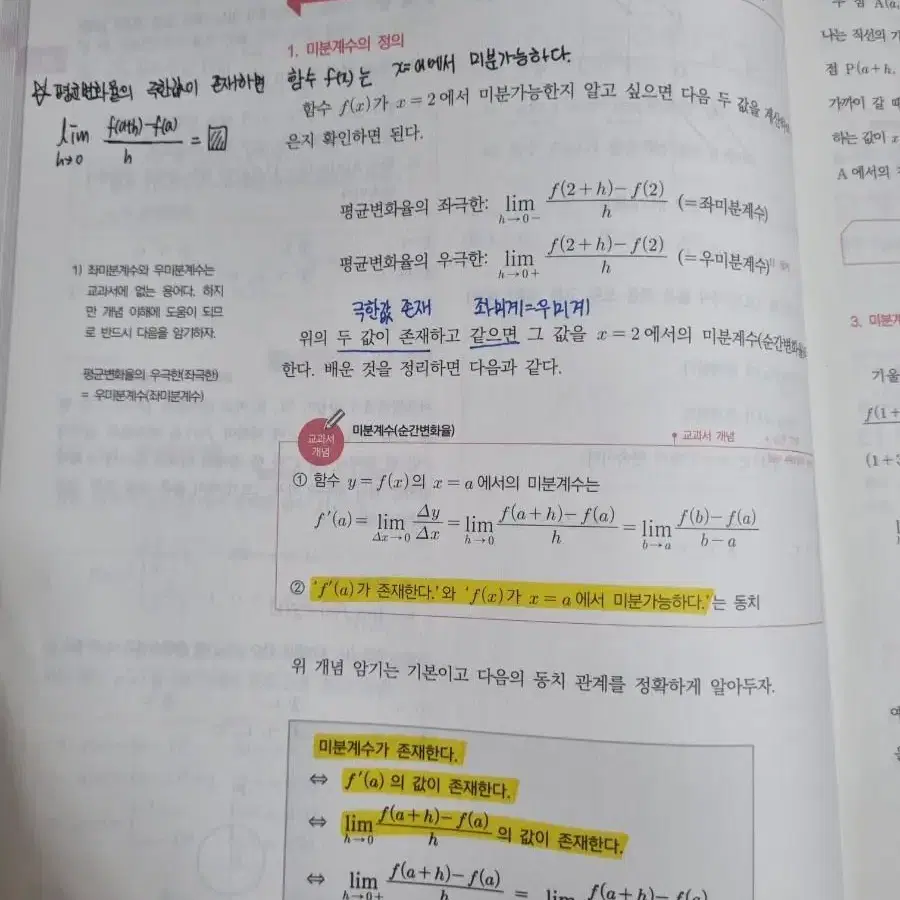 1. 미분계수의 정의
☆ 평균변화율의 극한값이 존재하면 함수 f(x)는 x=a에서 미분가능하다.
lim h→0 f(a+h)-f(a) / h =
함수 f(x)가 x=2에서 미분가능한지 알고 싶으면 다음 두 값을
은지 확인하면 된다.
평균변화율의 좌극한: lim h→0- f(2+h)-f(2) / h (=좌미분계수)
평균변화율의 우극한: lim h→0+ f(2+h)-f(2) / h (=우미분계수)
1) 좌미분계수와 우미분계수는
교과서에 없는 용어다. 하지
만 개념 이해에 도움이 되므
로 반드시 다음을 암기하자.
평균변화율의 우극한(좌극한)
= 우미분계수(좌미분계수)
극한값 존재 좌미계=우미계
위의 두 값이 존재하고 같으면 그 값을 x=2에서의 미분계수(순간변화율)
한다. 배운 것을 정리하면 다음과 같다.
교과서
개념
미분계수(순간변화율)
교과서 개념
① 함수 y=f(x)의 x=a에서의 미분계수는
f'(a)= lim Δx→0 Δy / Δx = lim h→0 f(a+h)-f(a) / h = lim b→a f(b)-f(a) / b-a
② 'f'(a)가 존재한다.'와 'f(x)가 x=a에서 미분가능하다.'는 동치
위 개념 암기는 기본이고 다음의 동치 관계를 정확하게 알아두자.
미분계수가 존재한다.
⇔ f'(a)의 값이 존재한다.
⇔ lim h→0 f(a+h)-f(a) / h 의 값이 존재한다.
⇔ lim h→0+ f(a+h)-f(a) / h = lim f(a+h)-f(a)
A(a,
나는 직선의 기
점 P(a+h,
가까이 갈 때
하는 값이 x
A에서의
3. 미분계
기울
f(1+
(1+